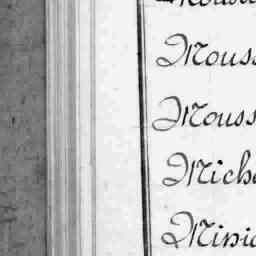 Mouss
Mouss
Miche
Minic